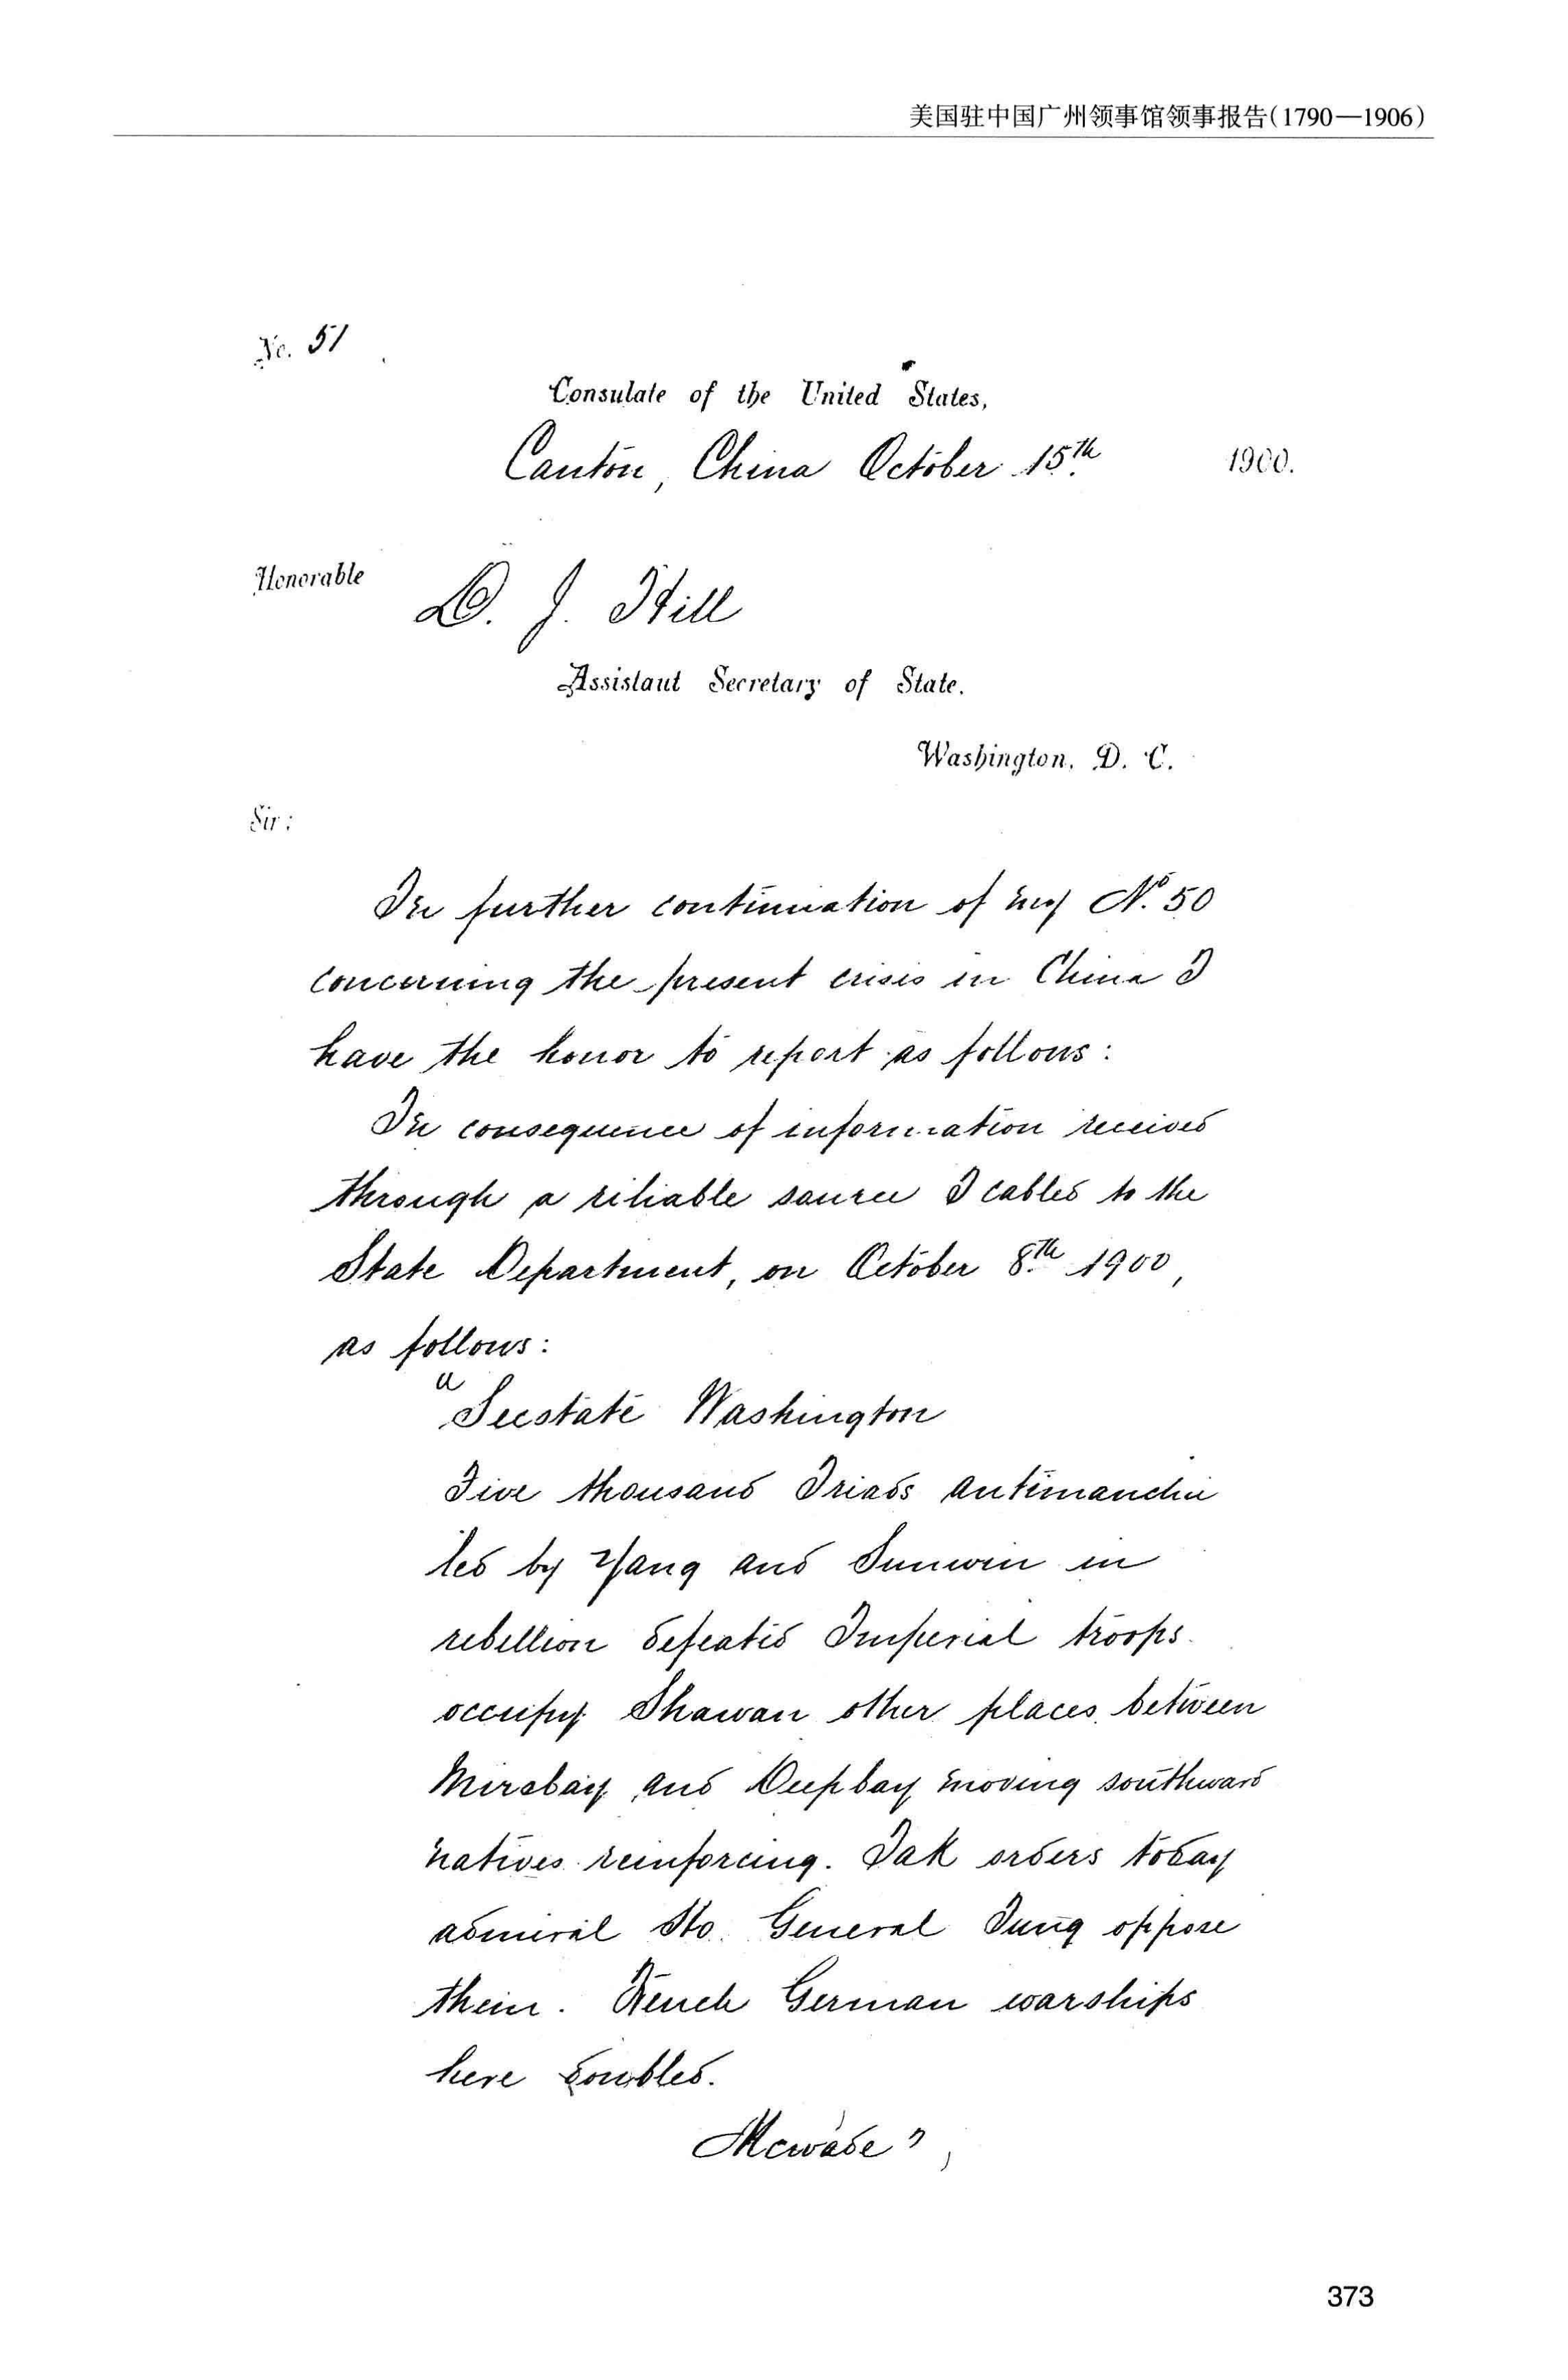 美国驻中国广州领事馆领事报告(1790—1906)
No. 51
Consulate of the United States,
Canton, China October 15th 1900.
Honorable
D. J. Hill
Assistant Secretary of State.
Washington, D. C.
Sir:
In further continuation of my No. 50
concerning the present crisis in China I
have the honor to report as follows:
In consequence of information received
through a reliable source I cabled to the
State Department, on October 8th 1900,
as follows:
"Secstate Washington
Five thousand Triads antimanchu
led by Yang and Sunwen in
rebellion defeated Imperial troops
occupy Shawan other places between
Mirsbay and Deepbay moving southward
natives reinforcing. Tak orders today
admiral Ho General Tung oppose
them. French German warships
here doubled.
Mcwade",
373